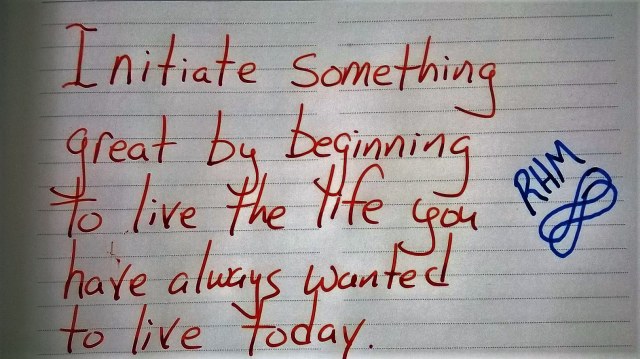 Initiate something
great by beginning
to live the life you
have always wanted
to live today.
RHM